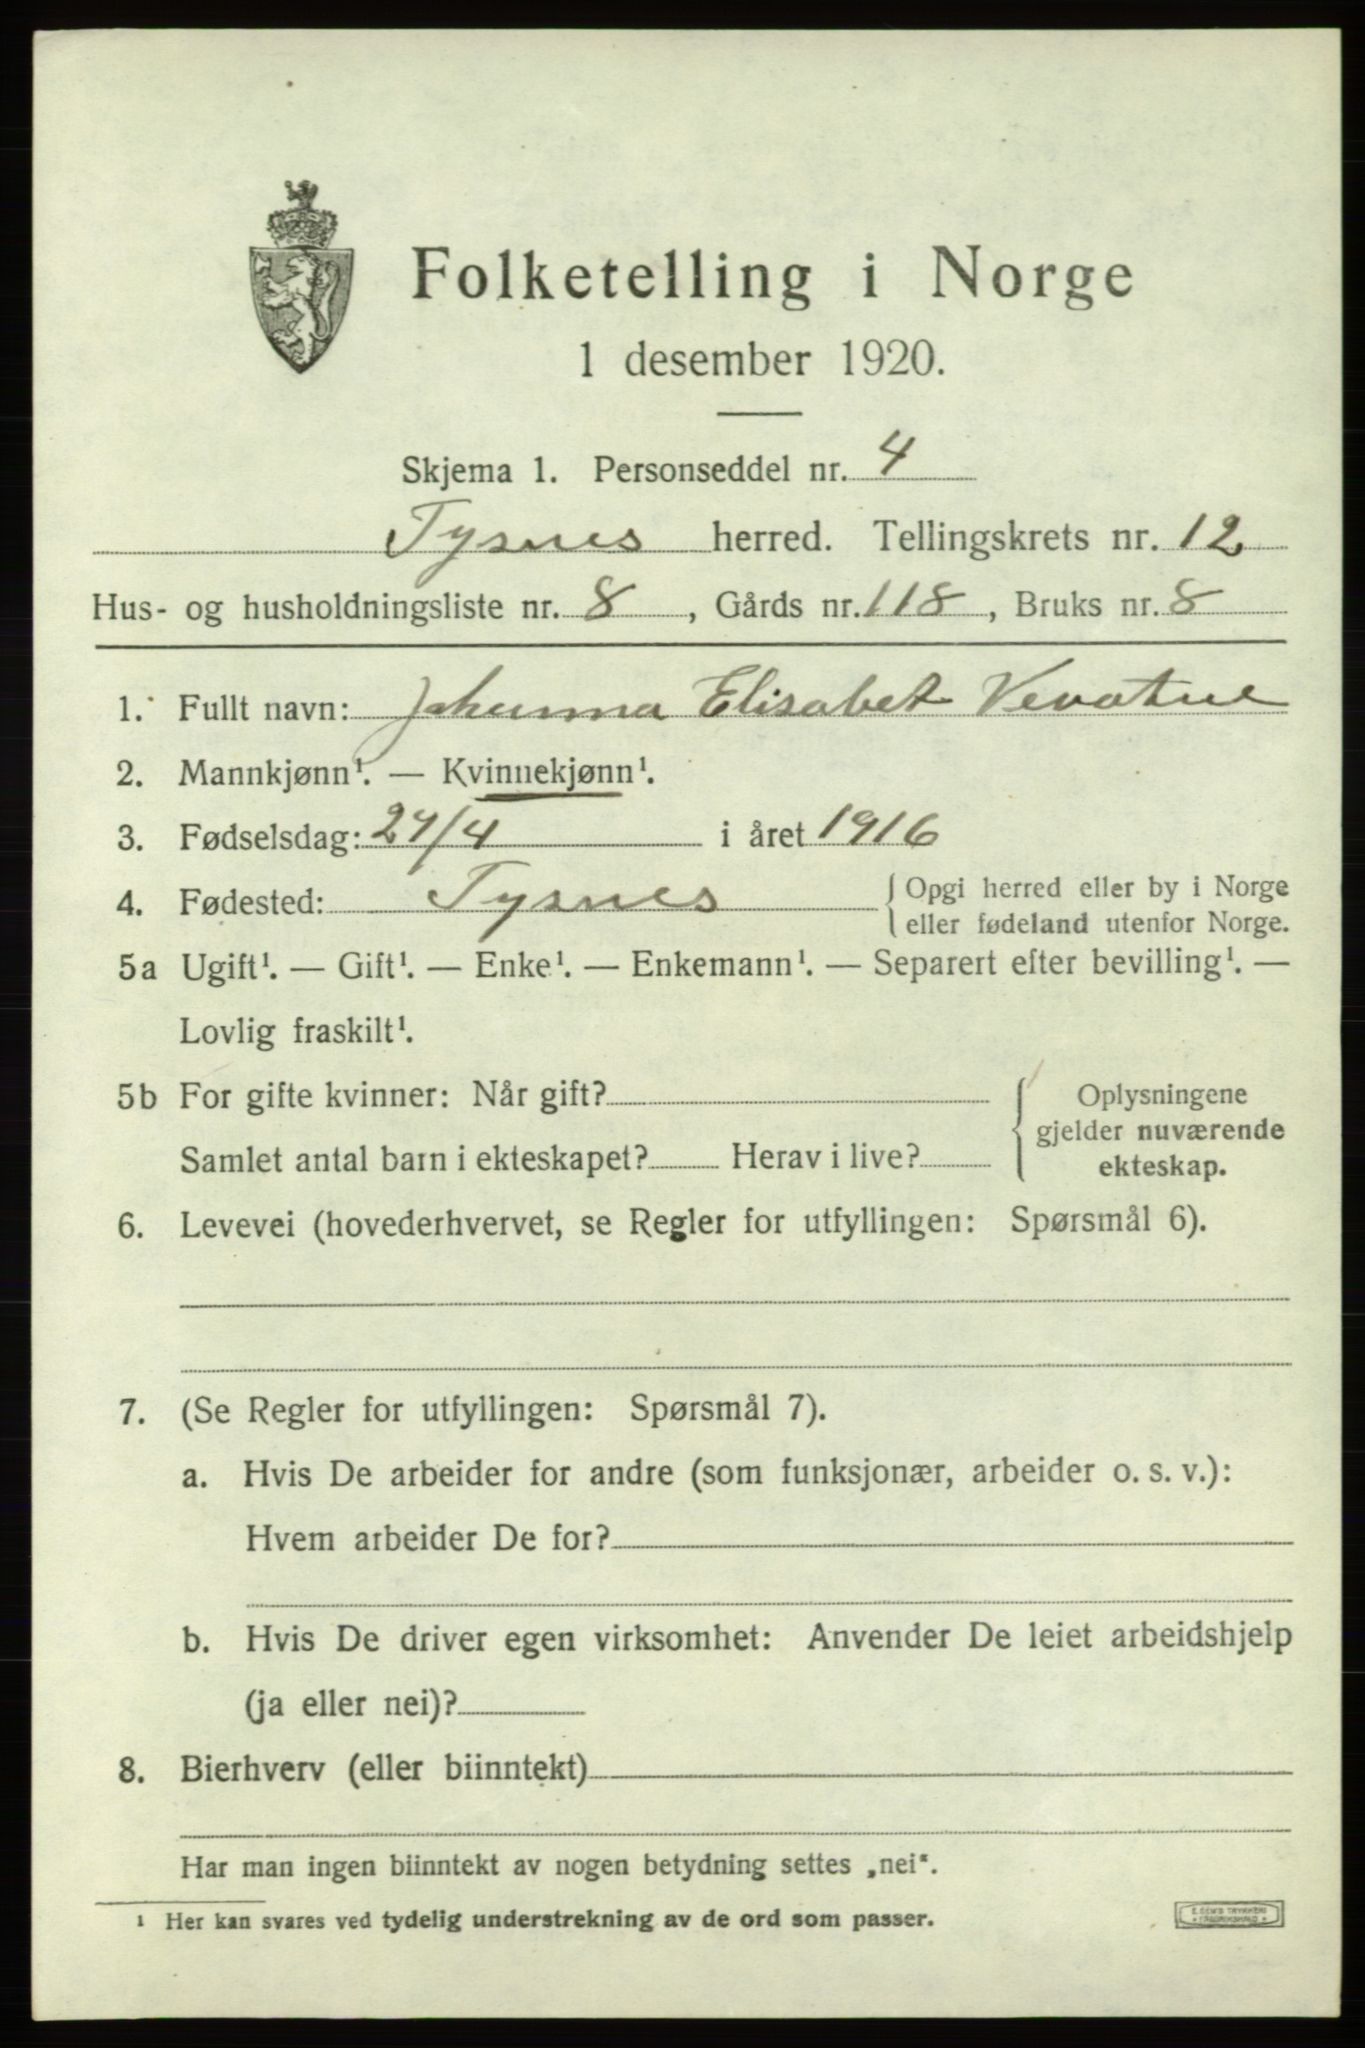 Folketelling i Norge
1 desember 1920.
Skjema 1. Personseddel nr. 4
Tysnes herred. Tellingskrets nr. 12
Hus- og husholdningsliste nr. 8, Gårds nr. 118, Bruks nr. 8
1. Fullt navn: Johanna Elisabet Vevatne
2. Mannkjønn¹. — Kvinnekjønn¹.
3. Fødselsdag: 27/4 i året 1916
4. Fødested: Tysnes { Opgi herred eller by i Norge
eller fødeland utenfor Norge.
5a Ugift¹. — Gift¹. — Enke¹. — Enkemann¹. — Separert efter bevilling¹. —
Lovlig fraskilt¹.
5b For gifte kvinner: Når gift?
Samlet antal barn i ekteskapet? Herav i live?
{ Oplysningene
gjelder nuværende
ekteskap.
6. Levevei (hovederhvervet, se Regler for utfyllingen: Spørsmål 6).
7. (Se Regler for utfyllingen: Spørsmål 7).
a. Hvis De arbeider for andre (som funksjonær, arbeider o. s. v.):
Hvem arbeider De for?
b. Hvis De driver egen virksomhet: Anvender De leiet arbeidshjelp
(ja eller nei)?
8. Bierhverv (eller biinntekt)
Har man ingen biinntekt av nogen betydning settes „nei“.
¹ Her kan svares ved tydelig understrekning av de ord som passer.